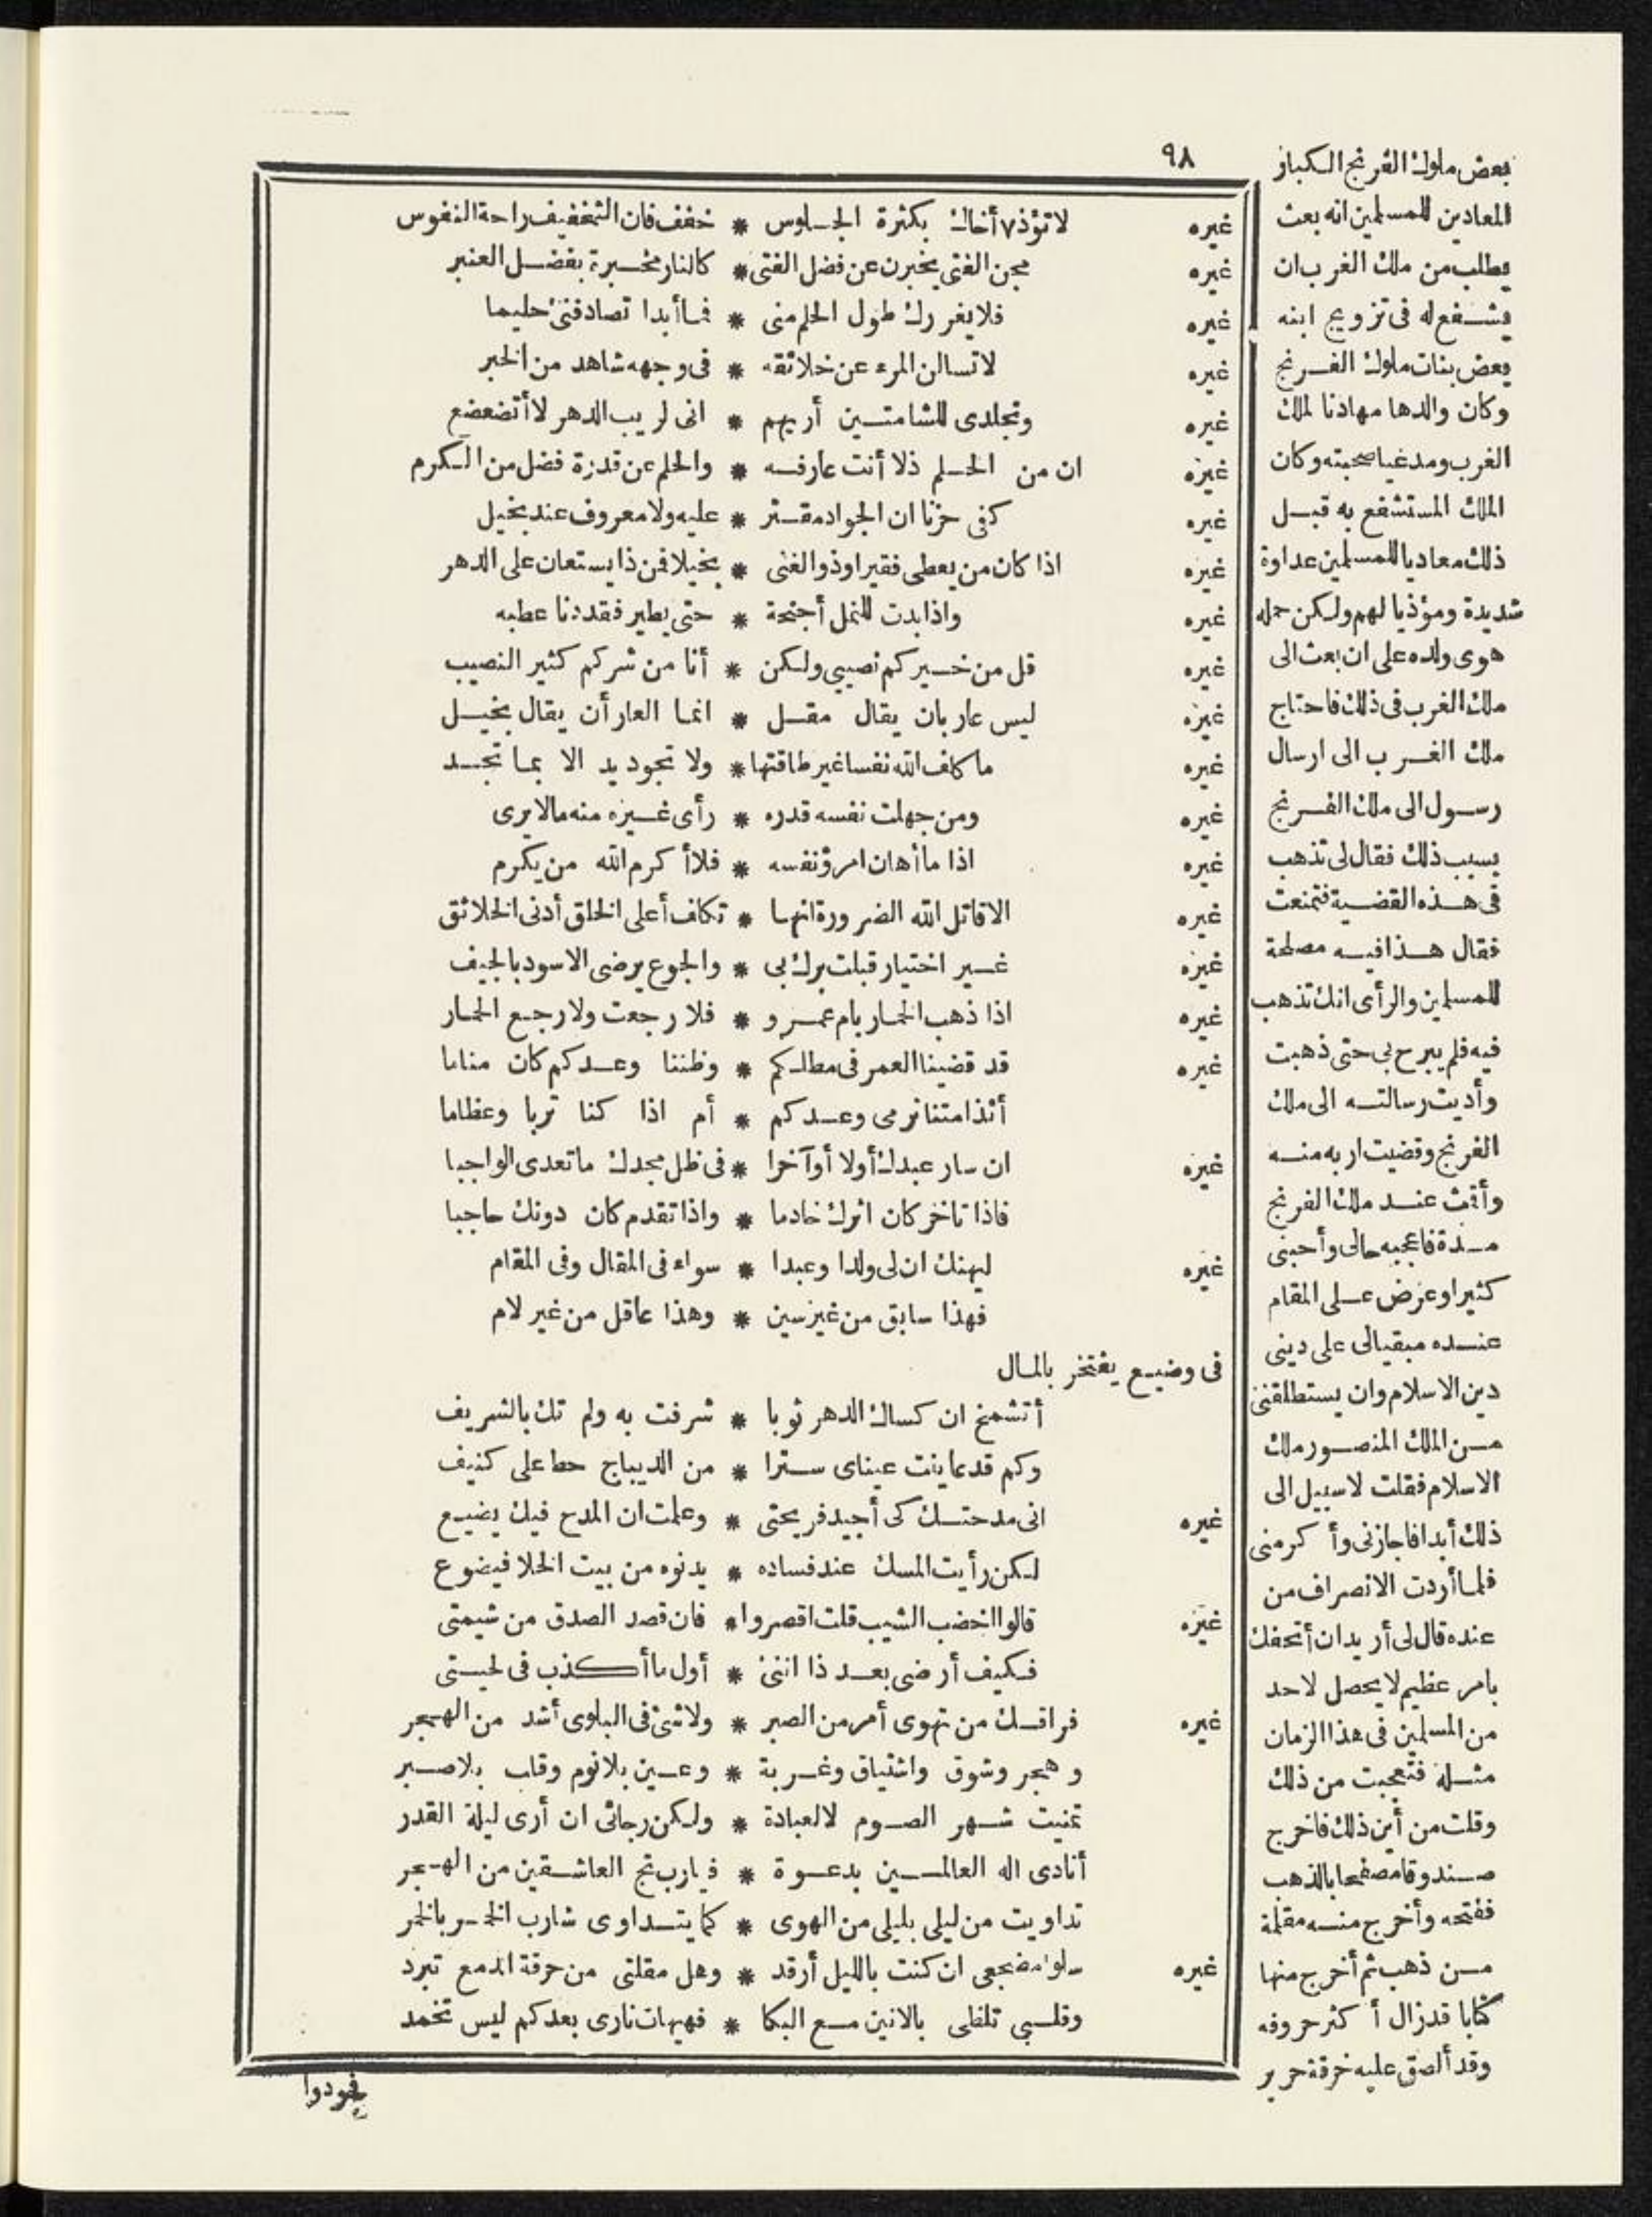 ٩٨
غيره لا تؤذ ٧ أخاك بكثرة الجلوس * خفف فان التخفيف راحة النفوس
غيره محن الفتى يخبرن عن فضل الفتى * كالنار مخبرة بفضل العنبر
غيره فلا يغررك طول الحلم منى * فما أبدا تصادفنى حليما
غيره لا تسالن المرء عن خلائقه * فى وجهه شاهد من الخبر
غيره وتجلدى للشامتين أريهم * انى لريب الدهر لا أتضعضع
غيره ان من الحلم ذلا أنت عارفه * والحلم عن قدرة فضل من الكرم
غيره كفى حزنا ان الجواد مقتر * عليه ولا معروف عند بخيل
غيره اذا كان من يعطى فقيرا وذو الغنى * بخيلا فمن ذا يستعان على الدهر
غيره واذا بدت للنمل أجنحة * حتى يطير فقد دنا عطبه
غيره قل من خيركم نصيبى ولكن * أنا من شركم كثير النصيب
غيره ليس عار بان يقال مقل * انما العار أن يقال بخيل
غيره ما كلف الله نفسا غير طاقتها * ولا تجود يد الا بما تجد
غيره ومن جهلت نفسه قدره * رأى غيره منه مالا يرى
غيره اذا ما أهان امرؤ نفسه * فلا أكرم الله من يكرم
غيره الا قاتل الله الضرورة انها * تكلف أعلى الخلق أدنى الخلائق
غيره غير اختيار قبلت برك بى * والجوع يرضى الاسود بالجيف
غيره اذا ذهب الحمار بام عمرو * فلا رجعت ولا رجع الحمار
غيره قد قضينا العمر فى مطلكم * وظننا وعدكم كان مناما
أئذا متنا نرمى وعدكم * أم اذا كنا تربا وعظاما
غيره ان سار عبدك أولا أو آخرا * فى ظل مجدك ما تعدى الواجبا
فاذا تاخر كان اثرك خادما * واذا تقدم كان دونك حاجبا
غيره ليهنك ان لى ولدا وعبدا * سواء فى المقال وفى المقام
فهذا سابق من غير سين * وهذا عاقل من غير لام
فى وضيع يفتخر بالمال
أتشمخ ان كساك الدهر ثوبا * شرفت به ولم تك بالشريف
وكم قد عاينت عيناى سترا * من الديباج حط على كنيف
غيره انى مدحتك كى أجيد قريحتى * وعلمت ان المدح فيك يضيع
لكن رأيت المسك عند فساده * يدنوه من بيت الخلا فيضوع
غيره قالوا اخضب الشيب قلت اقصروا * فان قصد الصدق من شيمتى
فكيف أرضى بعد ذا اننى * أول ما أكذب فى لحيتى
غيره فراقك من تهوى أمر من الصبر * ولا شئ فى البلوى أشد من الهجر
وهجر وشوق واشتياق وغربة * وعين بلا نوم وقلب بلا صبر
تمنيت شهر الصوم لا لعبادة * ولكن رجائى ان أرى ليلة القدر
أنادى اله العالمين بدعوة * فيارب نج العاشقين من الهجر
تداويت من ليلى بليلى من الهوى * كما يتداوى شارب الخمر بالخمر
غيره سلوا مضجعى ان كنت بالليل أرقد * وهل مقلتى من حرقة الدمع تبرد
وقلبى تلظى بالانين مع البكا * فهيهات نارى بعدكم ليس تخمد
فجودوا
بعض ملوك الفرنج الكبار
المعادين للمسلمين انه بعث
يطلب من ملك الغرب ان
يشفع له فى تزويج ابنه
بعض بنات ملوك الفرنج
وكان والدها مهادنا لملك
الغرب ومدعيا صحبته وكان
الملك المستشفع به قبل
ذلك معاديا للمسلمين عداوة
شديدة ومؤذيا لهم ولكن حمله
هوى ولده على ان بعث الى
ملك الغرب فى ذلك فاحتاج
ملك الغرب الى ارسال
رسول الى ملك الفرنج
بسبب ذلك فقال لى تذهب
فى هذه القضية فتمنعت
فقال هذا فيه مصلحة
للمسلمين والرأى انك تذهب
فيه فلم يبرح بى حتى ذهبت
وأديت رسالته الى ملك
الفرنج وقضيت اربه منه
وأقمت عند ملك الفرنج
مدة فاعجبه حالى وأحبنى
كثيرا وعرض على المقام
عنده مبقيالى على دينى
دين الاسلام وان يستطلقنى
من الملك المنصور ملك
الاسلام فقلت لا سبيل الى
ذلك أبدا فاجازنى وأكرمنى
فلما أردت الانصراف من
عنده قال لى أريد ان أتحفك
بامر عظيم لا يحصل لاحد
من المسلمين فى هذا الزمان
مثله فتعجبت من ذلك
وقلت من أين ذلك فاخرج
صندوقا مصفحا بالذهب
ففتحه وأخرج منه مقلمة
من ذهب ثم أخرج منها
كتابا قد زال أكثر حروفه
وقد ألصق عليه خرقة حرير